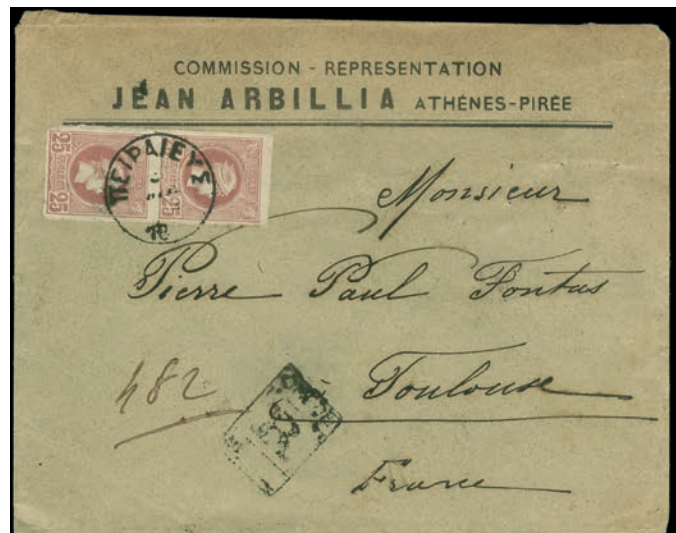 COMMISSION - REPRESENTATION
JEAN ARBILLIA ATHÈNES-PIRÉE
25
25
25
ΠΕΙΡΑΙΕΥΣ
Monsieur
Pierre Paul Fontas
482
Toulouse
France